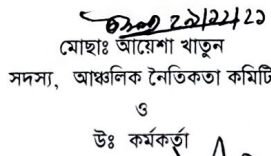 ২৯/১২/২১
মোছাঃ আয়েশা খাতুন
সদস্য, আঞ্চলিক নৈতিকতা কমিটি
ও
উঃ কর্মকর্তা